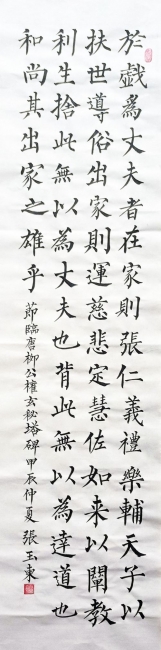 於戲為丈夫者在家則張仁義禮樂輔天子以
扶世導俗出家則運慈悲定慧佐如来以闡教
利生捨此無以為丈夫也背此無以為達道也
和尚其出家之雄乎
節臨唐柳公權玄秘塔碑甲辰仲夏張玉東